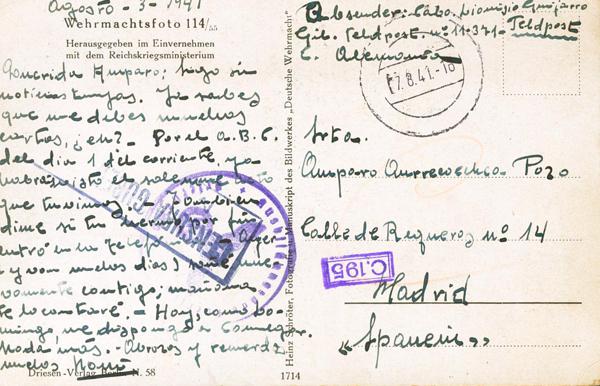 Agosto - 3 - 1941
Wehrmachtsfoto 114/55
Herausgegeben im Einvernehmen
mit dem Reichskriegsministerium
Querida Amparo: Sigo sin
noticias tuyas. Ya sabes
que me debes muchas
cartas, ¿eh? - Por el A.B.C.
del día 1 del corriente, ya
habrás visto el solemne acto
que tuvimos. - También
dime si tu por fin
entró en la Telefónica - Ayer
(y van muchos días)
vamente contigo; mañana
te lo contaré. - Hoy, como do-
mingo, me dispongo a comer.
Nada más. - Abrazos y recuerdos
Driesen-Verlag, Berlin N. 58
Heinz Schröter, Fotografie u. Manuskript des Bildwerkes „Deutsche Wehrmacht"
1714
Absender: Cabo Dionisio Guijarro
Feldpost nº 11.371 - Feldpost
Alemania
7.8.41.-18
Srta.
Amparo Pozo
Calle de Regueros nº 14
C.195
Madrid
"Spanien"